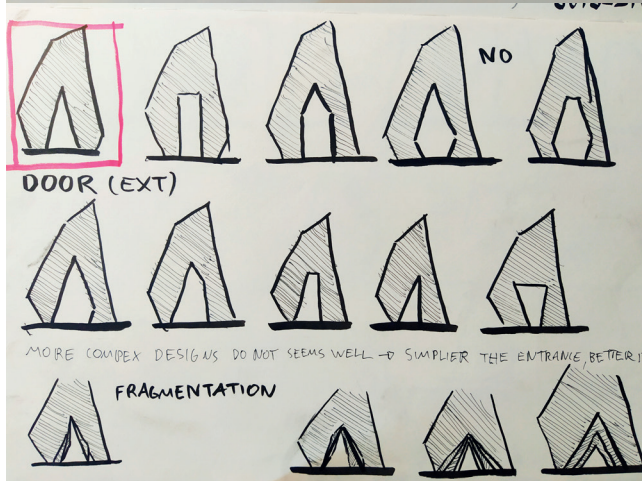 NO
DOOR (EXT)
MORE COMPEX DESIGNS DO NOT SEEMS WELL → SIMPLIER THE ENTRANCE, BETTER
FRAGMENTATION